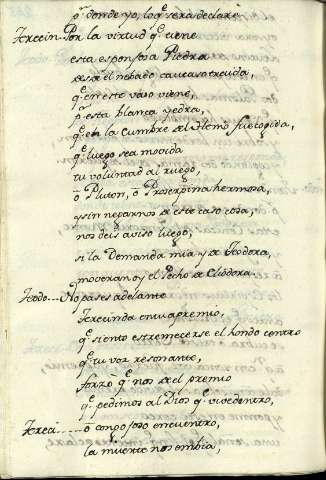 pr. donde yo, lo q.e sera declare
Arecin. Por la virtud q.e tiene
esta esponsosa Piedra
desde el nebado caucaso traida,
q.e en este vaso viene,
pr. esta blanca yedra,
q.e en la cumbre del Hemo fue cogida,
q.e luego sea movida
tu voluntad al ruego,
o Pluton, o Proserpina hermosa,
y sin negarnos de este caso cosa,
nos deis aviso luego;
si la Demanda mia y de Teodora,
moveran oy el Pecho de Clodora.
Teodo.... No pases adelante
Arecinda en su apremio,
q.e siento estremecerse el hondo centro
q.e tu voz resonante,
forzo q.e nos de el premio
q.e pedimos al Dios q.e vive dentro,
Areci...... o con poderoso encuentro,
la muerte nos embia,